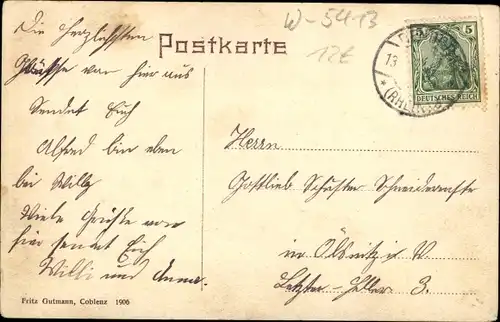 W-5413
12€
Postkarte
Die herzlichsten
Grüsse von hier aus
Sendet Euch
Alfred bin eben
bei Willy
Viele Grüsse von
hier sendet Euch
Willi und Anna.
Fritz Gutmann, Coblenz 1906
5
DEUTSCHES REICH
13
(RHEIN)
Herrn
Gottlieb Schuster
in Ölsnitz i. V.
3.